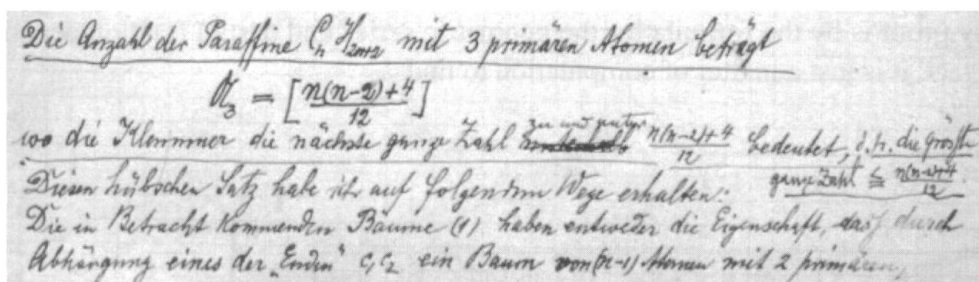 Die Anzahl der Paraffine CₙH₂ₙ₊₂ mit 3 primären Atomen beträgt
𝔄₃ = [n(n-2)+4 / 12]
wo die Klammer die nächste ganze Zahl zu und unter n(n-2)+4 / 12 bedeutet, d.h. die grösste
ganze Zahl ≦ n(n-2)+4 / 12
Diesen hübschen Satz habe ich auf folgendem Wege erhalten:
Die in Betracht kommenden Bäume (1) haben entweder die Eigenschaft, dass durch
Abhängung eines der „Enden" C₁C₂ ein Baum von (n-1) Atomen mit 2 primären,